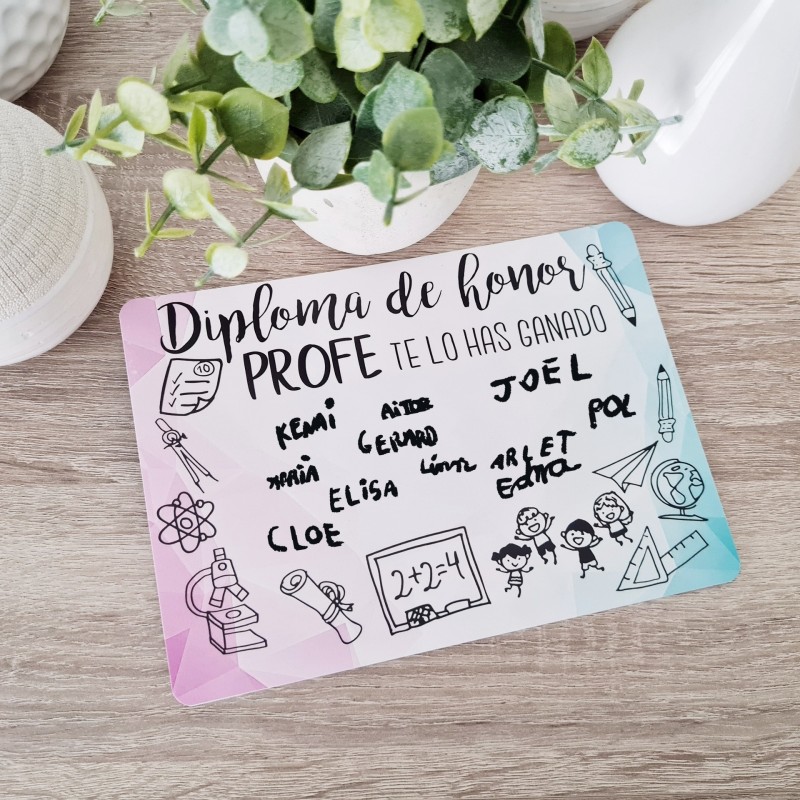 Diploma de honor
PROFE TE LO HAS GANADO
10
JOEL
AiTOR
POL
GERARD
ARLET
Edna
ELISA
CLOE
2+2=4